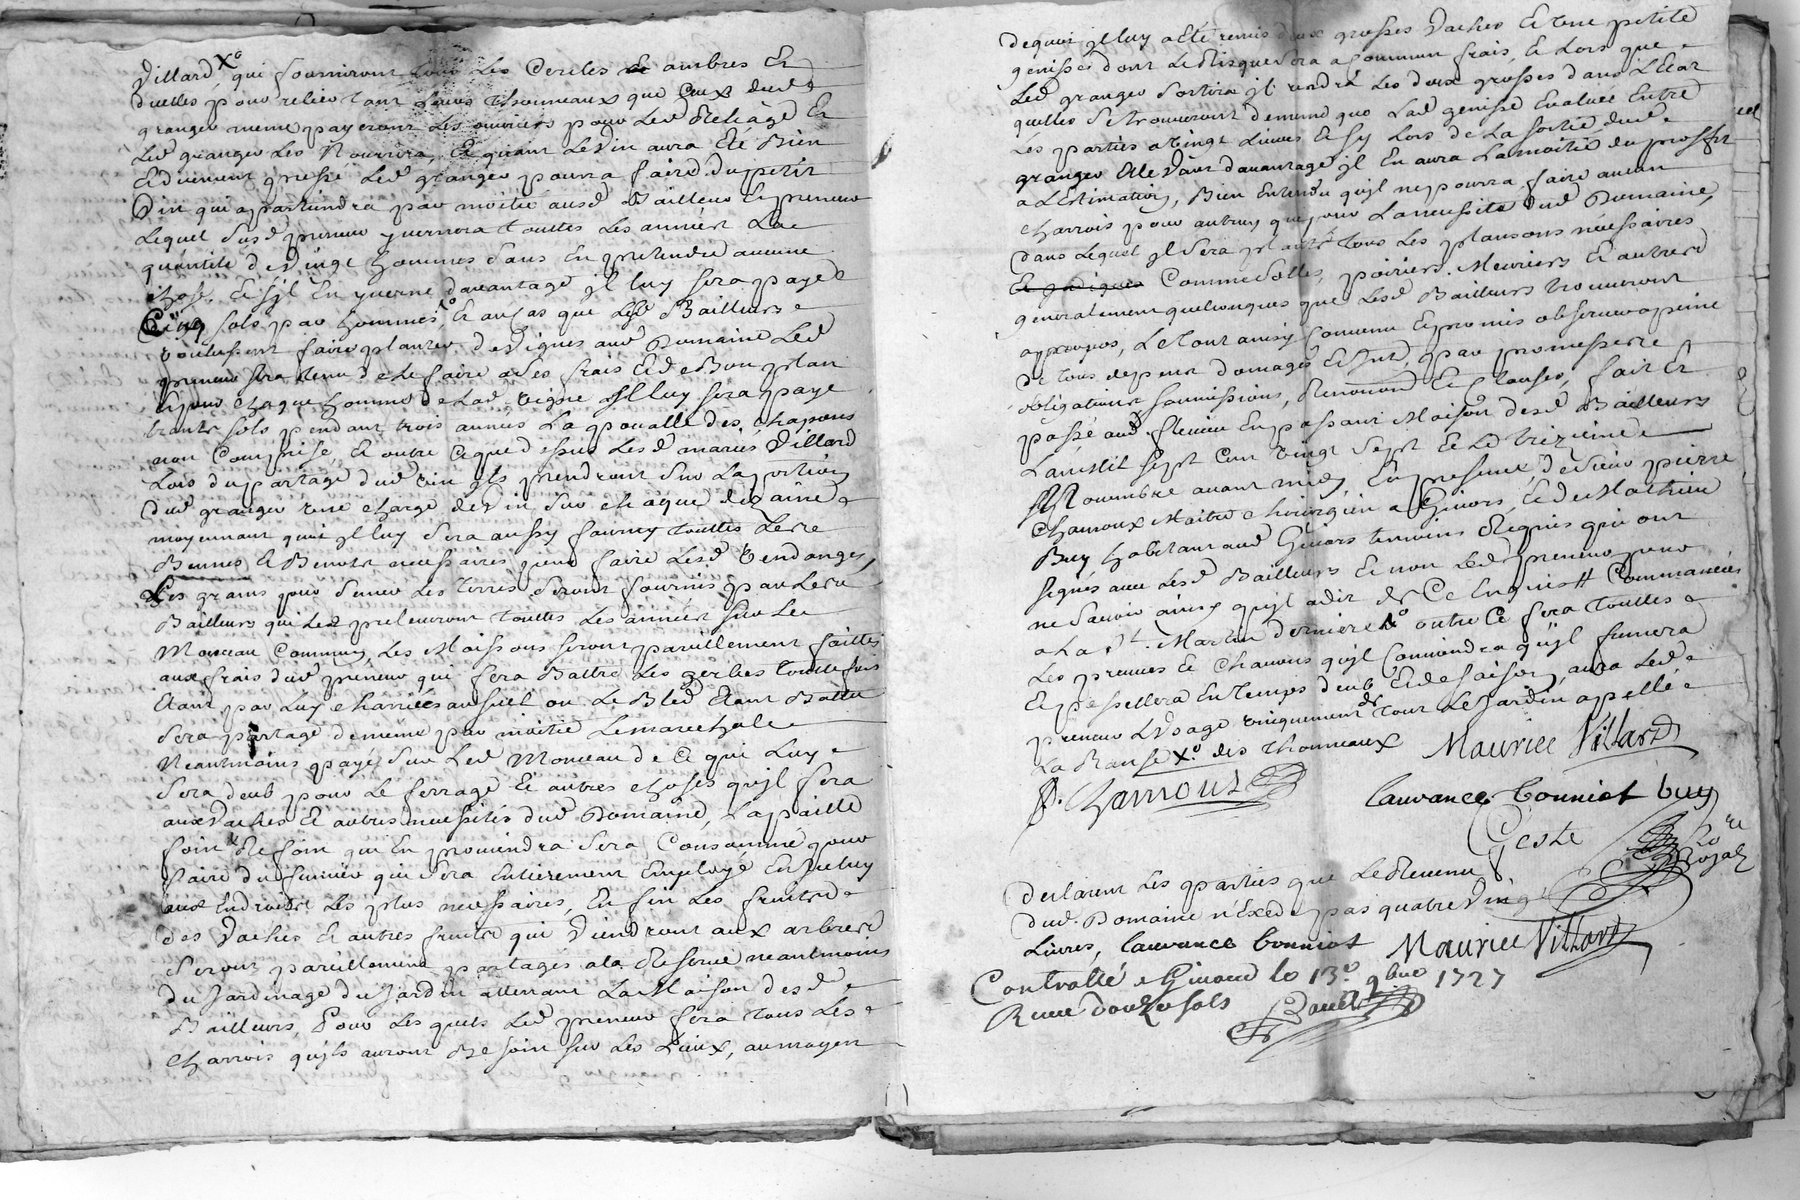 Villard X° qui fourniront tous les Cercles et ambres Et
duelles pour relier tant leurs thonneaux que ceux dud
granger meme payeront les ouvriers pour led Reliage Et
led granger les Nourrira, Et quant le Vin aura Eté Bien
Et duement pressé led granger pourra faire du petit
Vin qui apartiendra par moitié ausd Bailleurs Et preneur
lequel susd preneur yvernera touttes les années La
quantité de Vingt hommes sans En pretendre aucune
chose, Et s'jl En yverne davantage jl luy sera payé
Cinq sols par hommes, Et au cas que lesd Bailleurs
voulussent faire planter des Vignes aud Domaine Led
preneur sera tenu de le faire a ses frais Et de Bon plan
Et pour chaque homme de lad Vigne Jl luy sera payé
trante sols pendant trois années La
non Comprise, Et outre ce que dessus Lesd mariés Villard
Lors du partage dud Vin jls prendront sur La portion
dud granger une charge de Vin sur chaque dizaine
moyennant quoi jl luy sera aussy fourny touttes Les
Bennes Et Benots necessaires pour faire Lesd Vendanges,
Les grains pour semer Les terres seront fournis par Lesd
Bailleurs qui Les preleveront touttes Les années sur Le
Monceau Commun, Les Moissons seront pareillement faittes
aux frais dud preneur qui fera Battre Les gerbes toutte fois
Etant par Luy charriées au suel ou Le Bled Etant Battu
Sera partagé de meme par moitié Le marechal
Neantmoins payé sur Led Monceau de Ce qui Luy
Sera deub pour Le ferrage Et autres choses qu'jl fera
aux Vaches Et autres necessités dud Domaine, La paille
foin Et Refoin qui En proviendra sera Consommé pour
faire du fumier qui sera Entierement Employé En jceluy
aux Endroits Les plus necessaires, En fin Les fruits
des Vaches Et autres fruits qui Viendront aux arbres
Seront pareillement partagés a la Reserve neantmoins
du Jardinage du Jardin attenant La Maison desd
Bailleurs, Pour Les quels Led preneur fera tous Les
Charrois qu'jls auront Besoin sur Les Lieux, au moyen
de quoi jl luy a été remis deux grosses Vaches Et une petite
genisse dont Le Risque sera a Commun frais, Et Lors que
Led granger Sortira jl rendra Les deux grosses dans L'Etat
quelles se trouveront de meme que Lad genisse Evaluée Entre
Les parties a Vingt Livres Et sy Lors de La sortie dud
granger Elle Vaut davantage jl En aura La moitié du proffit
a L'Estimation, Bien Entendu qu'jl ne pourra faire aucun
charrois pour autruy que pour La necessité dud Domaine,
dans Lequel jl sera planté tous Les plansons necessaires
Comme solles, poiriers, Meuriers Et autres
generalement quelconques que Lesd Bailleurs trouveront
appropos, Le tout ainsy Convenu Et promis observer a peine
de tous depens domages Et Int, par promesses
obligations soumissions, Renonond Et Clauses, fait Et
passé aud. En passant Maison desd Bailleurs
L'an Mil sept Cent Vingt sept Et Le treizieme
Novembre avant midy, En presence de sieur pierre
Chamoux Maitre chirurgien a Givors, Et de Mathieu
Buy habitant aud Givors temoins Requis qui ont
signés avec Lesd Bailleurs Et non Led preneur pour
ne Savoir ainsy qu'jl a dit de Ce Enquis # Commancée
a La St. Martin derniere X° outre Ce fera touttes
Les preuves Et Chavons qu'jl Conviendra qu'jl fumera
Et pessellera En temps deub Et de saison, aura Led
preneur L'Usage Uniquement de tout Le Jardin apellé
La Ranse X° des thonneaux Maurice Villard
P. Chamoux
Lauvance Bonniot buy
Geste
No.re Royal
declarent Les parties que Le Revenu
dud. Domaine n'Exede pas quatre Vingt
Livres, Lauvance bonniot Maurice Villard
Controllé a Givord le 13e 9bre 1727
Receu douze sols